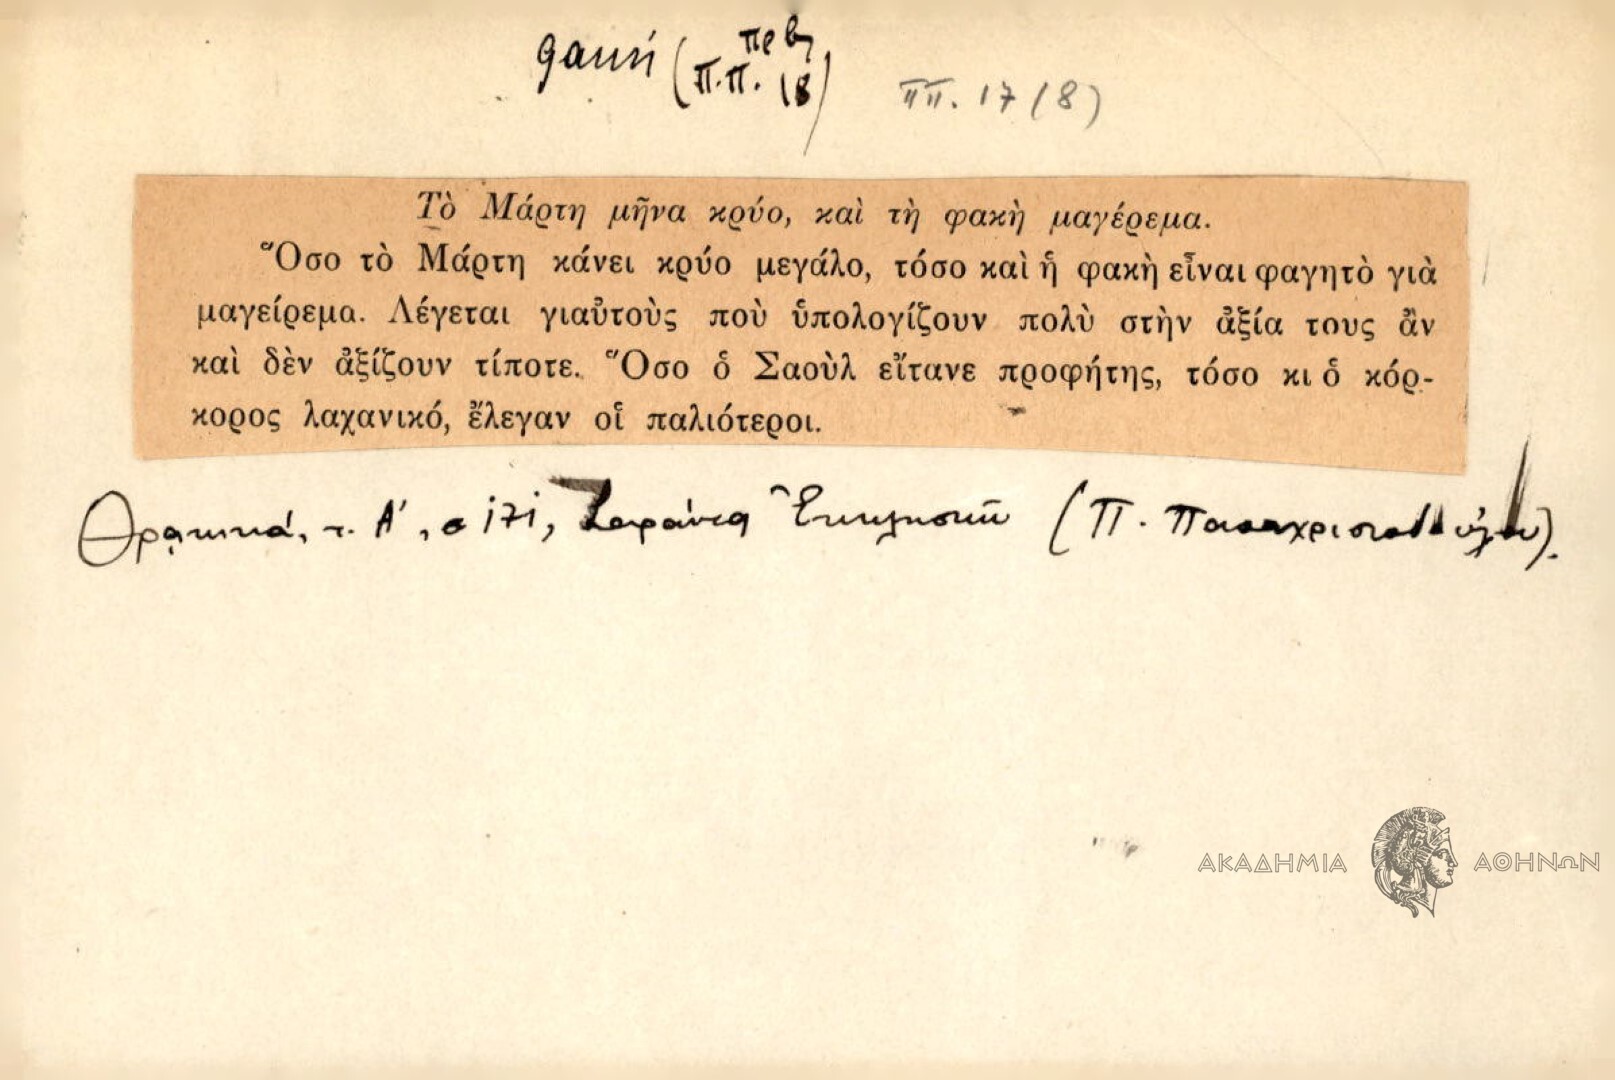 φακή (πρβ
Π.Π. 18)
ΠΠ. 17 (8)
Τὸ Μάρτη μῆνα κρύο, καὶ τὴ φακὴ μαγέρεμα.
Ὅσο τὸ Μάρτη κάνει κρύο μεγάλο, τόσο καὶ ἡ φακὴ εἶναι φαγητὸ γιὰ
μαγείρεμα. Λέγεται γιαὐτοὺς ποὺ ὑπολογίζουν πολὺ στὴν ἀξία τους ἂν
καὶ δὲν ἀξίζουν τίποτε. Ὅσο ὁ Σαοὺλ εἴτανε προφήτης, τόσο κι ὁ κόρ-
κορος λαχανικό, ἔλεγαν οἱ παλιότεροι.
Θρακικά, τ. Α', σ 171, Σαράντα Ἐκκλησιῶν (Π. Παπαχριστοδούλου).
ΑΚΑΔΗΜΙΑ ΑΘΗΝΩΝ